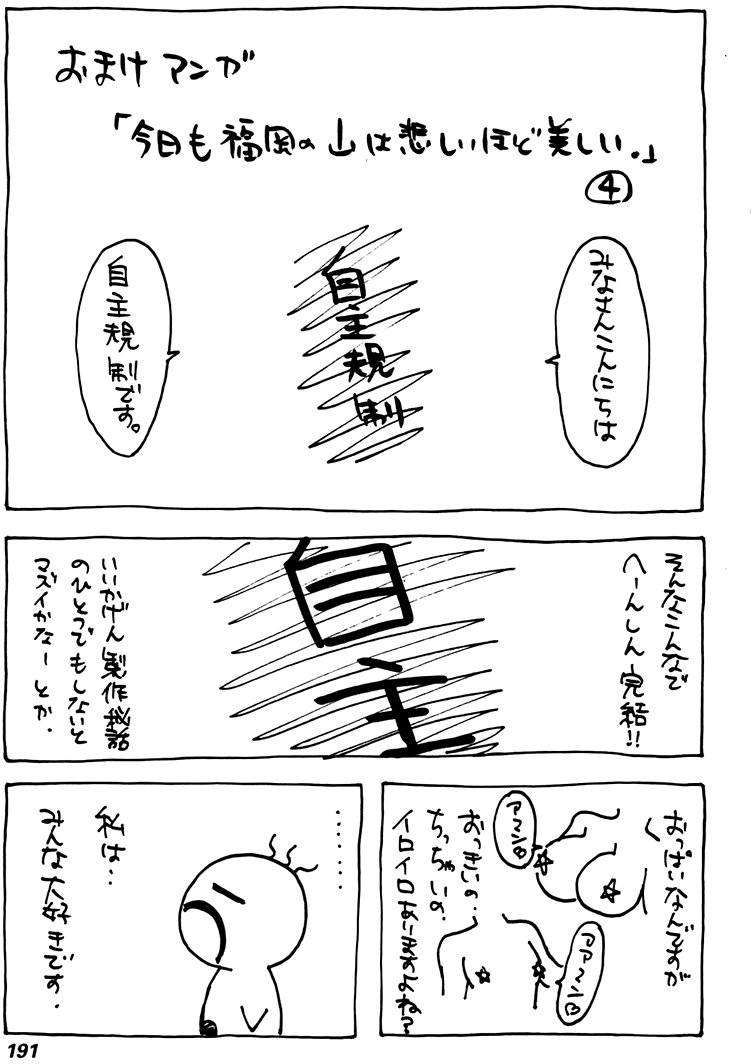 おまけ マンガ
「今日も福岡の山は悲しいほど美しい。」
④
みなさんこんにちは
自主規制
自主規制です。
そんなこんなで
へーんしん 完結!!
自主
いいかげん 製作秘話
のひとつでもしないと
マズイかなーとか.
おっぱいなんですが
アアン
おっきいの..
ちっちゃいの.
イロイロありますよね?
アアン
........
私は..
みんな大好きです.
191